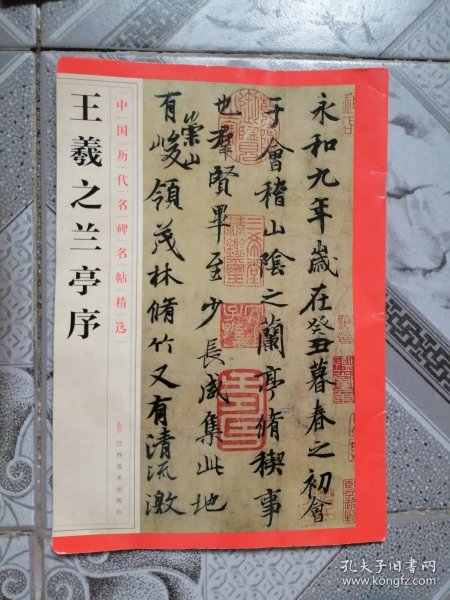 王羲之兰亭序
中国历代名碑名帖精选
江西美术出版社
永和九年歲在癸丑暮春之初會
于會稽山陰之蘭亭脩稧事
也羣賢畢至少長咸集此地
有崇山峻領茂林脩竹又有清流激
孔夫子旧书网
www.kongfz.com